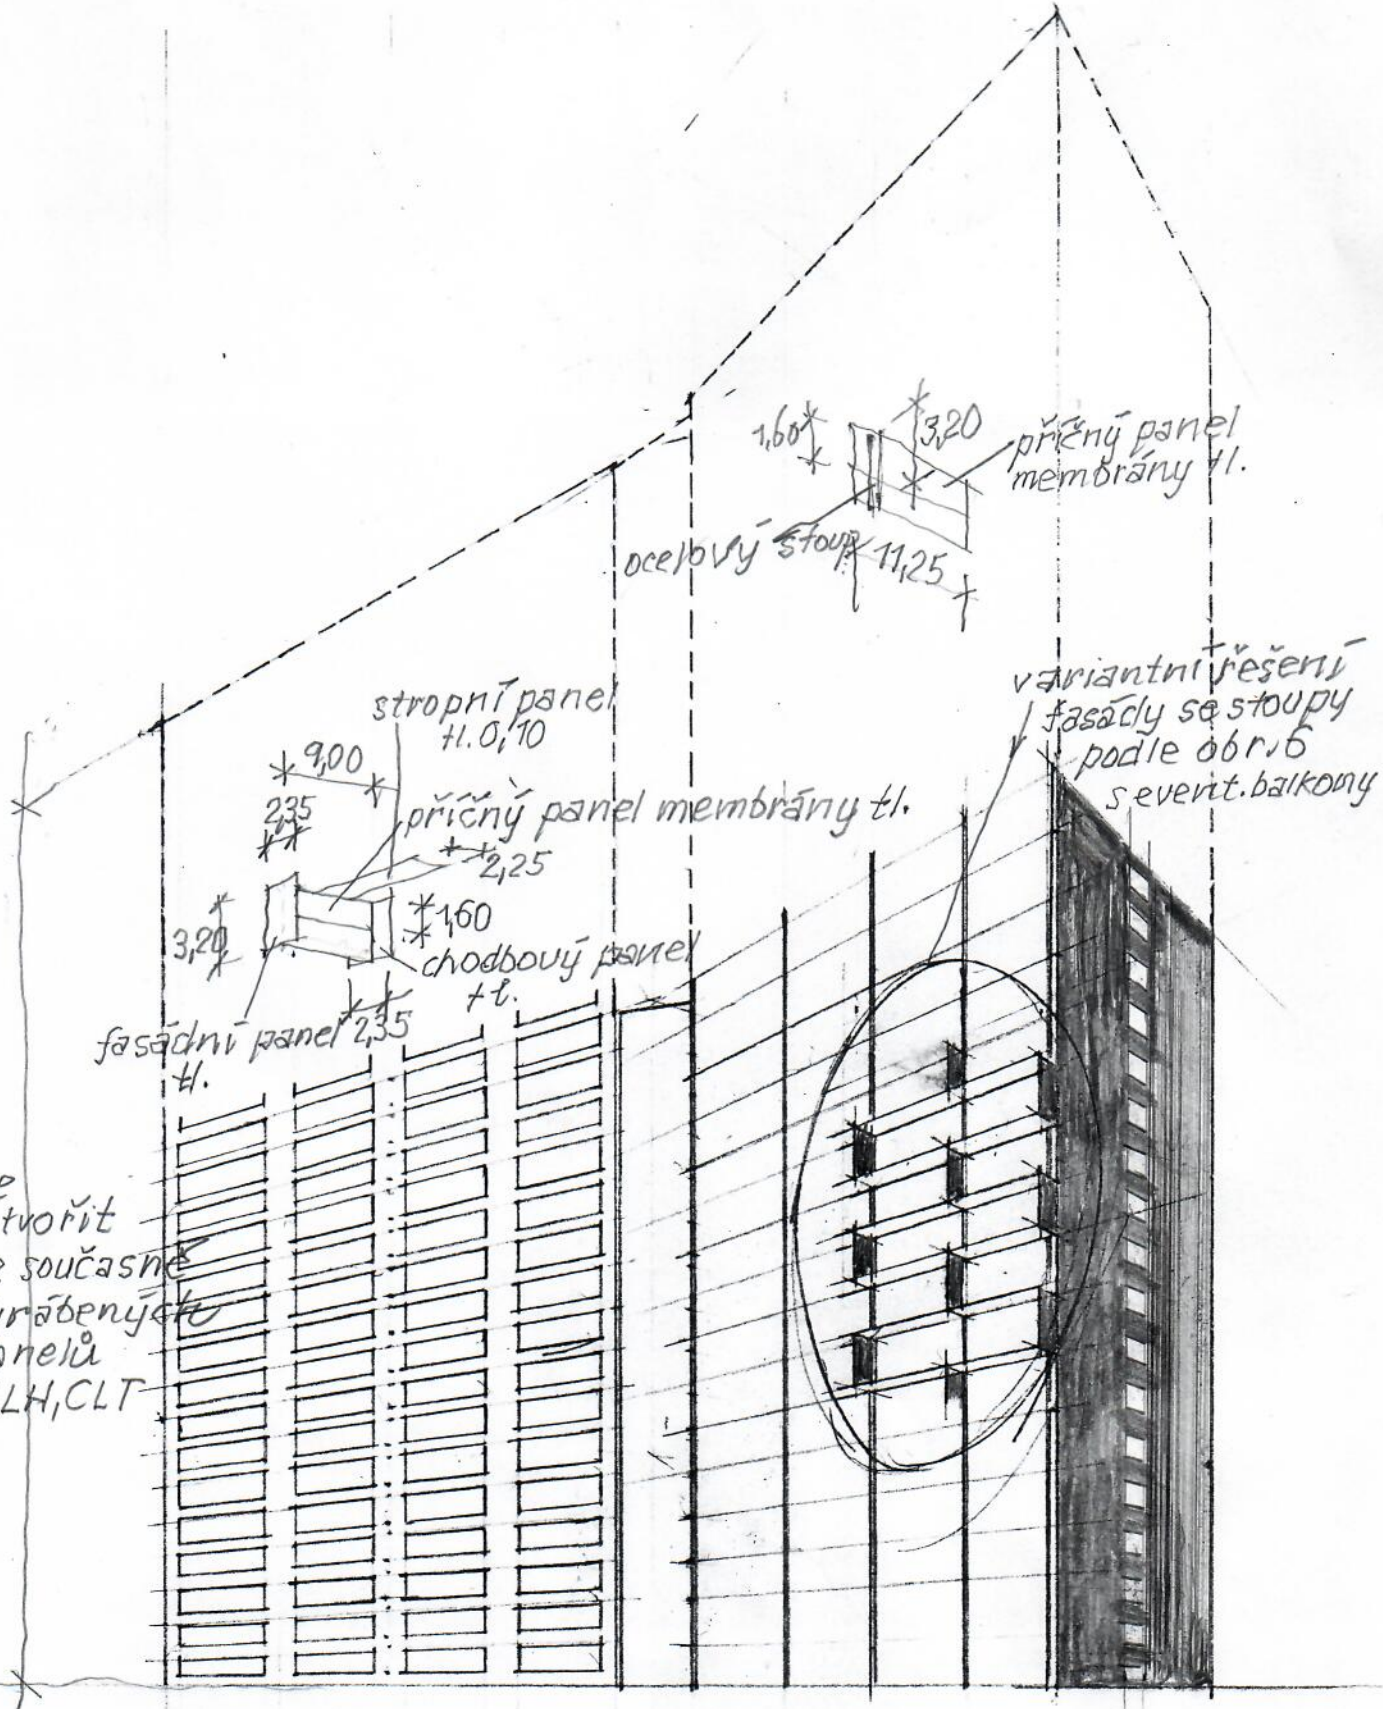 1,60
3,20
příčný panel
membrány tl.
ocelový stoup
11,25
variantní řešení
fasády se stoupy
podle obr. 6
s event. balkony
stropní panel
tl. 0,10
9,00
2,35
příčný panel membrány tl.
2,25
3,20
1,60
chodbový panel
tl.
fasádní panel
tl.
2,35
tvořit
současně
ráběných
nelů
LH, CLT